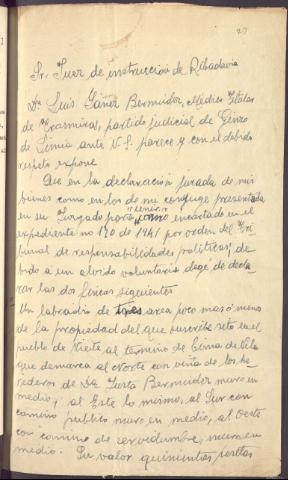 Sr. Juez de instrucción de Ribadavia
Dn Luis Sáñez Bermúdez, Medico Titular
de Trasmiras, partido judicial de Ginzo
de Limia ante V.S. parece y con el debido
respeto expone
Que en la declaración jurada de mis
bienes como en los de mi conyuge presentada
en su Juzgado para como encartado en el
expediente no 190 de 1941 por orden del Tri
bunal de responsabilidades politicas; de
bido a un olvido voluntario dejé de decla
rar las dos fincas siguientes
Un labradío de tres area poco mas ó menos
de la propiedad del que suscribe sito en el
pueblo de Vieite al termino de Cima de Vila
que demarca al Norte con viña de los he
rederos de Dª Justa Bermúdez muro en
medio; al Este lo mismo, al Sur con
camino publico muro en medio, al Oeste
con camino de servidumbre, muro en
medio. Su valor quinientas pesetas